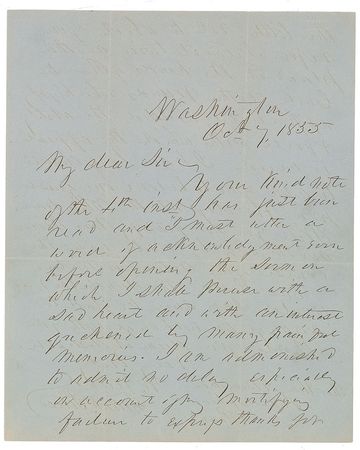 Washington
Oct 7, 1855
My dear Sir,
Your kind note
of the 4th inst. has just been
read and I must utter a
word of acknowledgment even
before opening the Sermon
which I shall peruse with a
sad heart and with an interest
quickened by many painful
memories. I am admonished
to admit no delay especially
on account of my mortifying
failure to express thanks for